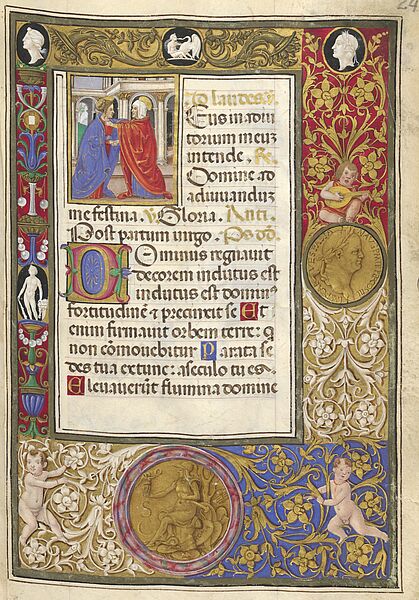 24
Ad laudes.
Eus in adiu
torium meuz
intende. Re.
Domine ad
adiuvanduz
me festina. v Gloria. Anti.
Post partum virgo. Ps dd.
Dominus regnavit
decorem indutus est
indutus est dominꝰ
fortitudinē & precinxit se Et
enim firmavit orbem terre: q
non cōmovebitur Parata se
des tua extunc: a seculo tu es.
Elevaverūt flumina domine